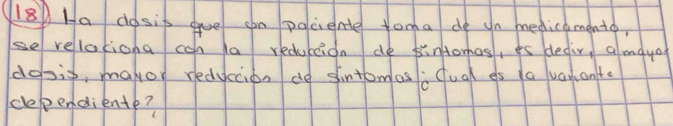 18) La dosis que un paciente toma de un medicamento,
se relaciona con la reducción de síntomas, es decir, a mayor
dosis, mayor reducción de sintomas ¿Cual es la variante
dependiente?